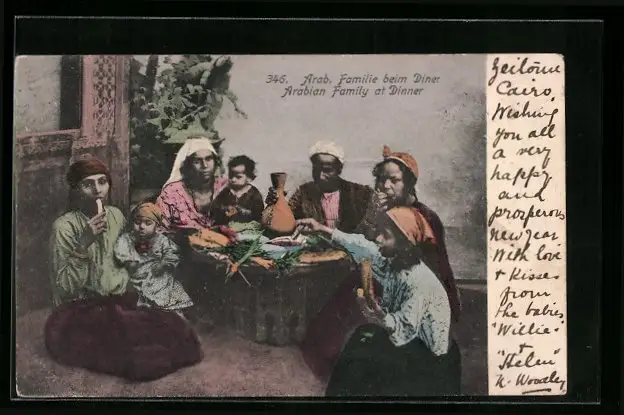 346. Arab. Familie beim Diner
Arabian Family at Dinner
Zeitoun
Cairo.
Wishing
you all
a very
happy
and
prosperous
new year
With love
& Kisses
from
the babies
"Willie"
&
"Helen"
N. Woodley